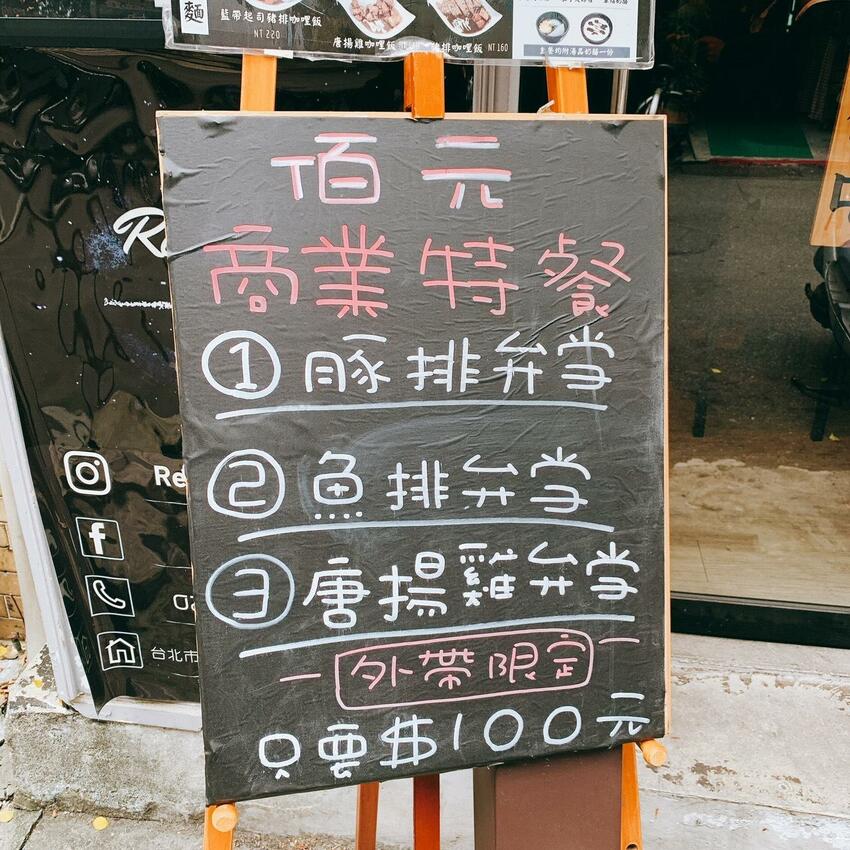 麵
藍帶起司豬排咖哩飯
NT 220
唐揚雞咖哩飯
豬排咖哩飯 NT 160
主餐均附湯品奶酪一份
佰元
商業特餐
① 豚排弁当
② 魚排弁当
③ 唐揚雞弁当
外帶限定
只要$100元
Re
台北市